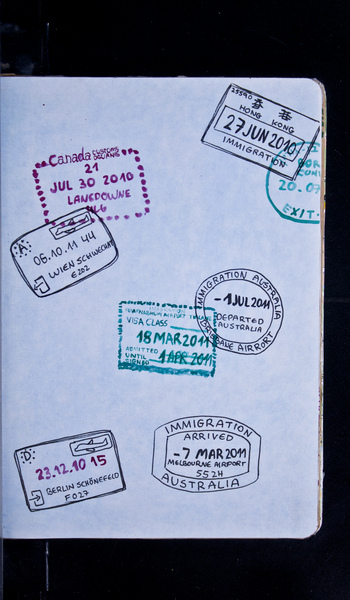 25590
香 港
HONG KONG
27 JUN 2010
IMMIGRATION
20.07
EXIT
Canada CUSTOMS DOUANES
21
JUL 30 2010
LANSDOWNE
A
06.10.11 44
WIEN SCHWECHAT
E202
IMMIGRATION AUSTRALIA
-1 JUL 2011
DEPARTED
AUSTRALIA
BRISBANE AIRPORT
VISA CLASS
18 MAR 2011
ADMITTED
UNTIL
SIGNED
1 APR 2011
D
23.12.10 15
BERLIN SCHÖNEFELD
F027
IMMIGRATION
ARRIVED
-7 MAR 2011
MELBOURNE AIRPORT
552H
AUSTRALIA